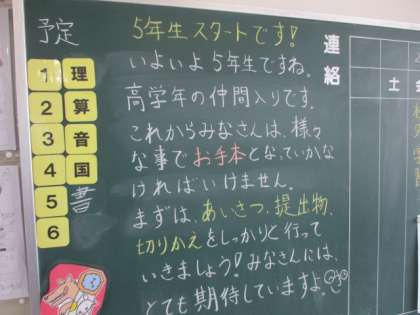 予定
1 理
2 算
3 音
4 国
5 書
6
5年生スタートです!
いよいよ5年生ですね。
高学年の仲間入りです。
これからみなさんは、様々
な事でお手本となっていかな
ければいけません。
まずは、あいさつ、提出物、
切りかえをしっかりと行って
いきましょう!みなさんには、
とても期待していますよ。
連絡
土